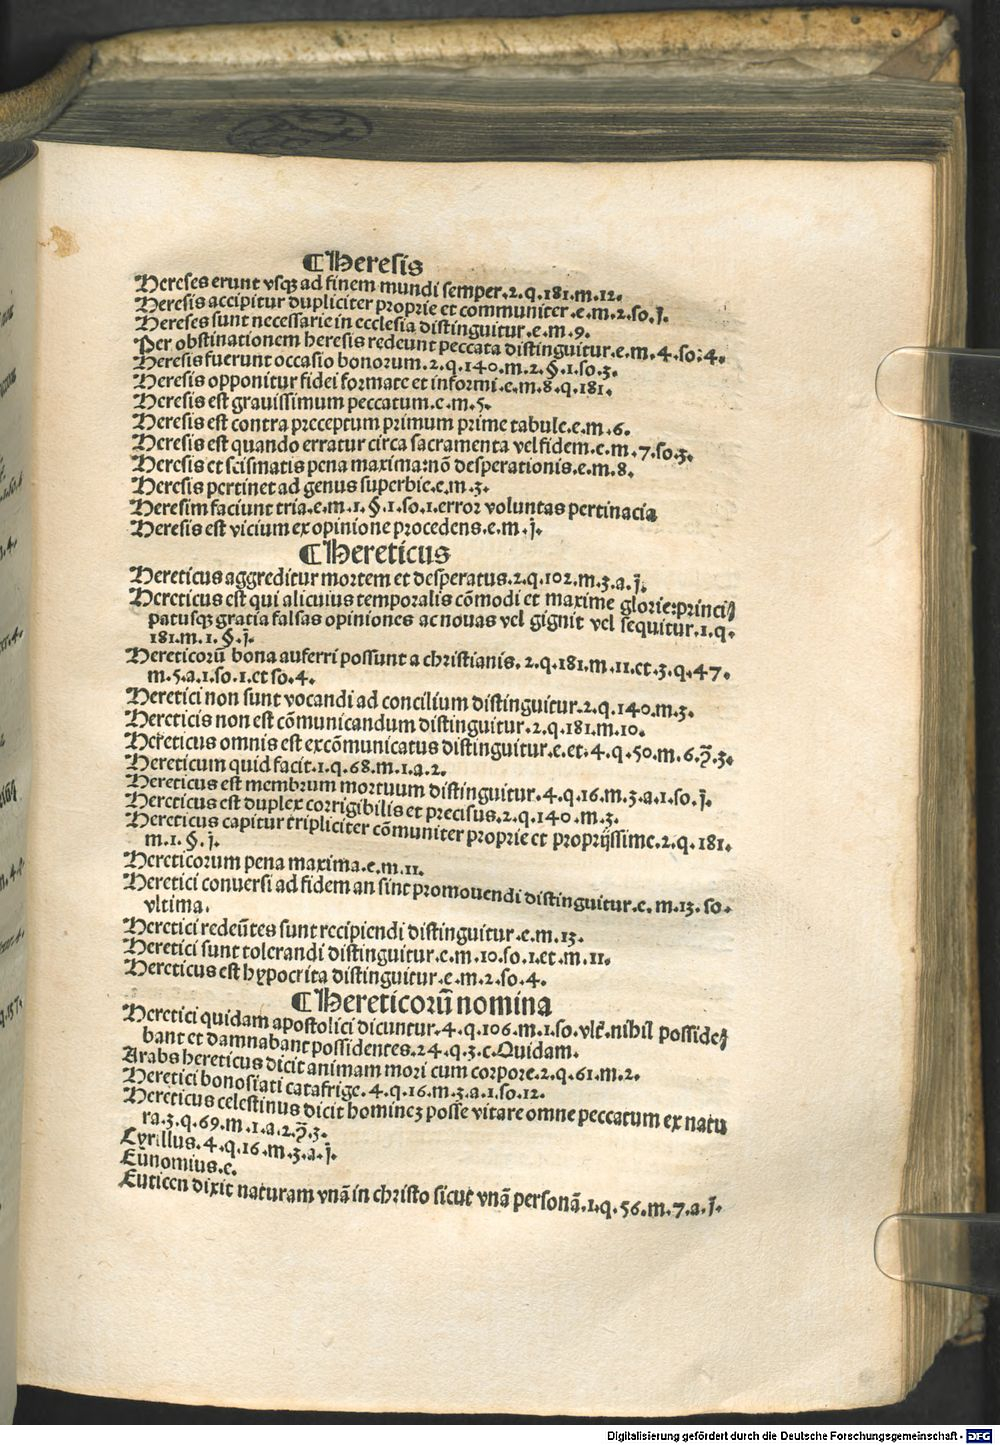 ¶ Heresis
Hereses erunt vsqꝫ ad finem mundi semper.2.q.181.m.12.
Heresis accipitur dupliciter proprie et communiter.e.m.2.so.j.
Hereses sunt necessarie in ecclesia distinguitur.e.m.9.
Per obstinationem heresis redeunt peccata distinguitur.e.m.4.so.4.
Heresis fuerunt occasio bonorum.2.q.140.m.2.§.1.so.3.
Heresis opponitur fidei formate et informi.e.m.8.q.181.
Heresis est grauissimum peccatum.e.m.5.
Heresis est contra preceptum primum prime tabule.e.m.6.
Heresis est quando erratur circa sacramenta vel fidem.e.m.7.so.3.
Heresis et scismatis pena maxima:nõ desperationis.e.m.8.
Heresis pertinet ad genus superbie.e.m.3.
Heresim faciunt tria.e.m.1.§.1.so.1.error voluntas pertinacia
Heresis est vicium ex opinione procedens.e.m.j.
¶ Hereticus
Hereticus aggreditur mortem et desperatus.2.q.102.m.3.a.j.
Hereticus est qui alicuius temporalis cõmodi et maxime glorie:princi⸗
patusqꝫ gratia falsas opiniones ac nouas vel gignit vel sequitur.1.q.
181.m.1.§.j.
Hereticorũ bona auferri possunt a christianis.2.q.181.m.11.et.3.q.47.
m.5.a.1.so.1.et so.4.
Heretici non sunt vocandi ad concilium distinguitur.2.q.140.m.3.
Hereticis non est cõmunicandum distinguitur.2.q.181.m.10.
Hereticus omnis est excõmunicatus distinguitur.e.et.4.q.50.m.6.p̃.3.
Hereticum quid facit.1.q.68.m.1.a.2.
Hereticus est membrum mortuum distinguitur.4.q.16.m.3.a.1.so.j.
Hereticus est duplex corrigibilis et precisus.2.q.140.m.3.
Hereticus capitur tripliciter cõmuniter proprie et proprijssime.2.q.181.
m.1.§.j.
Hereticorum pena maxima.e.m.11.
Heretici conuersi ad fidem an sint promouendi distinguitur.e.m.13.so.
vltima.
Heretici redeũtes sunt recipiendi distinguitur.e.m.13.
Heretici sunt tolerandi distinguitur.e.m.10.so.1.et.m.11.
Hereticus est hypocrita distinguitur.e.m.2.so.4.
¶ Hereticorũ nomina
Heretici quidam apostolici dicuntur.4.q.106.m.1.so.vlt̃.nihil posside⸗
bant et damnabant possidentes.24.q.3.c.Quidam.
Arabs hereticus dicit animam mori cum corpore.2.q.61.m.2.
Heretici bonosiati catafrige.4.q.16.m.3.a.1.so.12.
Hereticus celestinus dicit homineꝫ posse vitare omne peccatum ex natu
ra.3.q.69.m.1.a.2.p̃.3.
Cyrillus.4.q.16.m.3.a.j.
Eunomius.e.
Euticen dixit naturam vnã in christo sicut vnã personã.1.q.56.m.7.a.j.
Digitalisierung gefördert durch die Deutsche Forschungsgemeinschaft - DFG